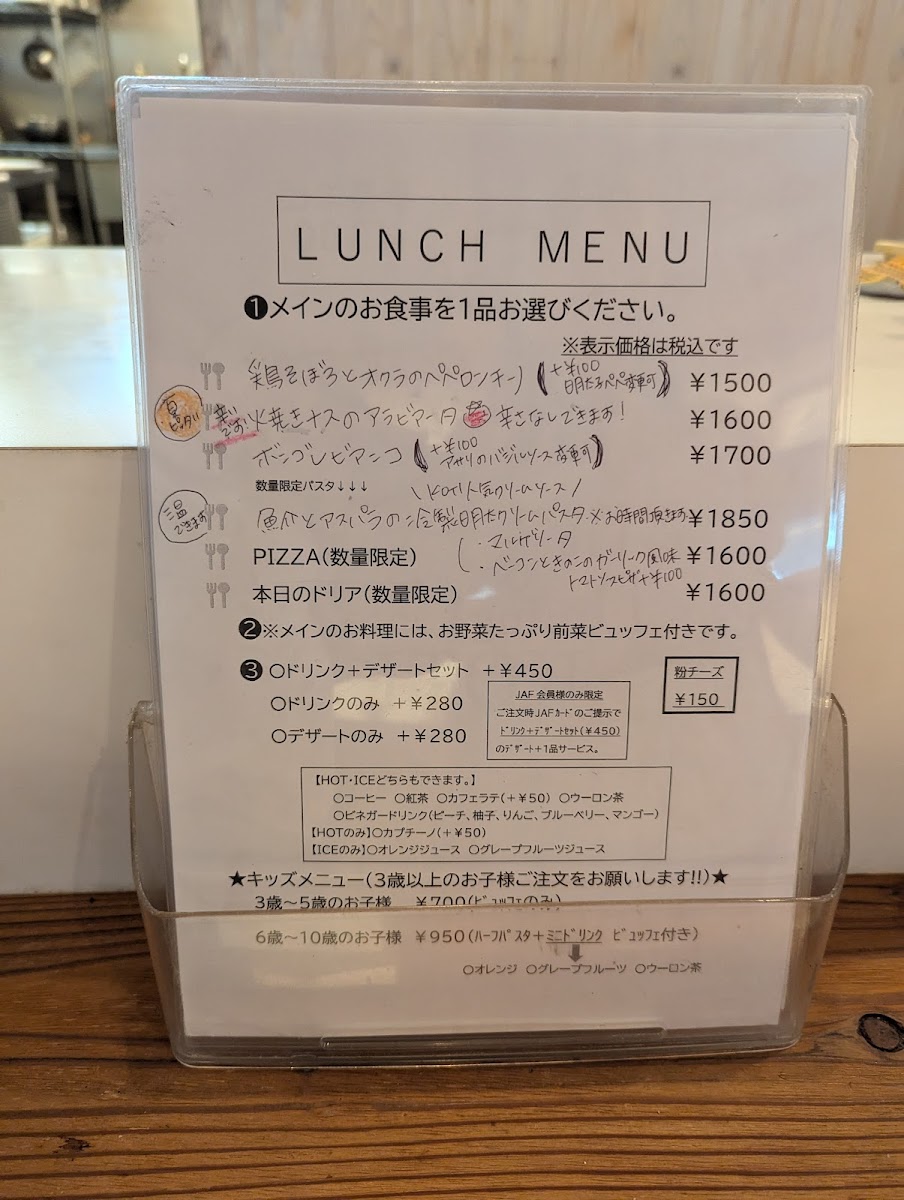 LUNCH MENU
❶メインのお食事を1品お選びください。
※表示価格は税込です
鶏そぼろとオクラのペペロンチーノ (+¥100 明太ペペ変更可) ¥1500
夏にピッタリ 辛いです 焼きナスのアラビアータ 辛さなしできます! ¥1600
ボンゴレビアンコ (+¥100 アサリのバジルソース変更可) ¥1700
数量限定パスタ↓↓↓ \KOTI人気クリームソース/
温できます 魚介とアスパラの冷製明太クリームパスタ ※お時間頂きます ¥1850
PIZZA(数量限定) ・マルゲリータ ¥1600
・ベーコンときのこのガーリック風味
トマトソースピザ+¥100
本日のドリア(数量限定) ¥1600
❷※メインのお料理には、お野菜たっぷり前菜ビュッフェ付きです。
❸ ○ドリンク+デザートセット +¥450
○ドリンクのみ +¥280
○デザートのみ +¥280
JAF会員様のみ限定
ご注文時JAFカードのご提示で
ドリンク+デザートセット(¥450)
のデザート+1品サービス。
粉チーズ
¥150
【HOT・ICEどちらもできます。】
○コーヒー ○紅茶 ○カフェラテ(+¥50) ○ウーロン茶
○ビネガードリンク(ピーチ、柚子、りんご、ブルーベリー、マンゴー)
【HOTのみ】○カプチーノ(+¥50)
【ICEのみ】○オレンジジュース ○グレープフルーツジュース
★キッズメニュー(3歳以上のお子様ご注文をお願いします!!)★
3歳~5歳のお子様 ¥700(ビュッフェのみ)
6歳~10歳のお子様 ¥950(ハーフパスタ+ミニドリンク ビュッフェ付き)
○オレンジ ○グレープフルーツ ○ウーロン茶